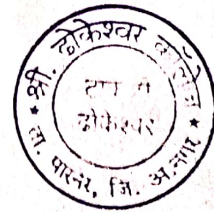 श्री. ढोकेश्वर कॉलेज
ढोकेश्वर
★ ता. पारनेर, जि. अ.नगर ★